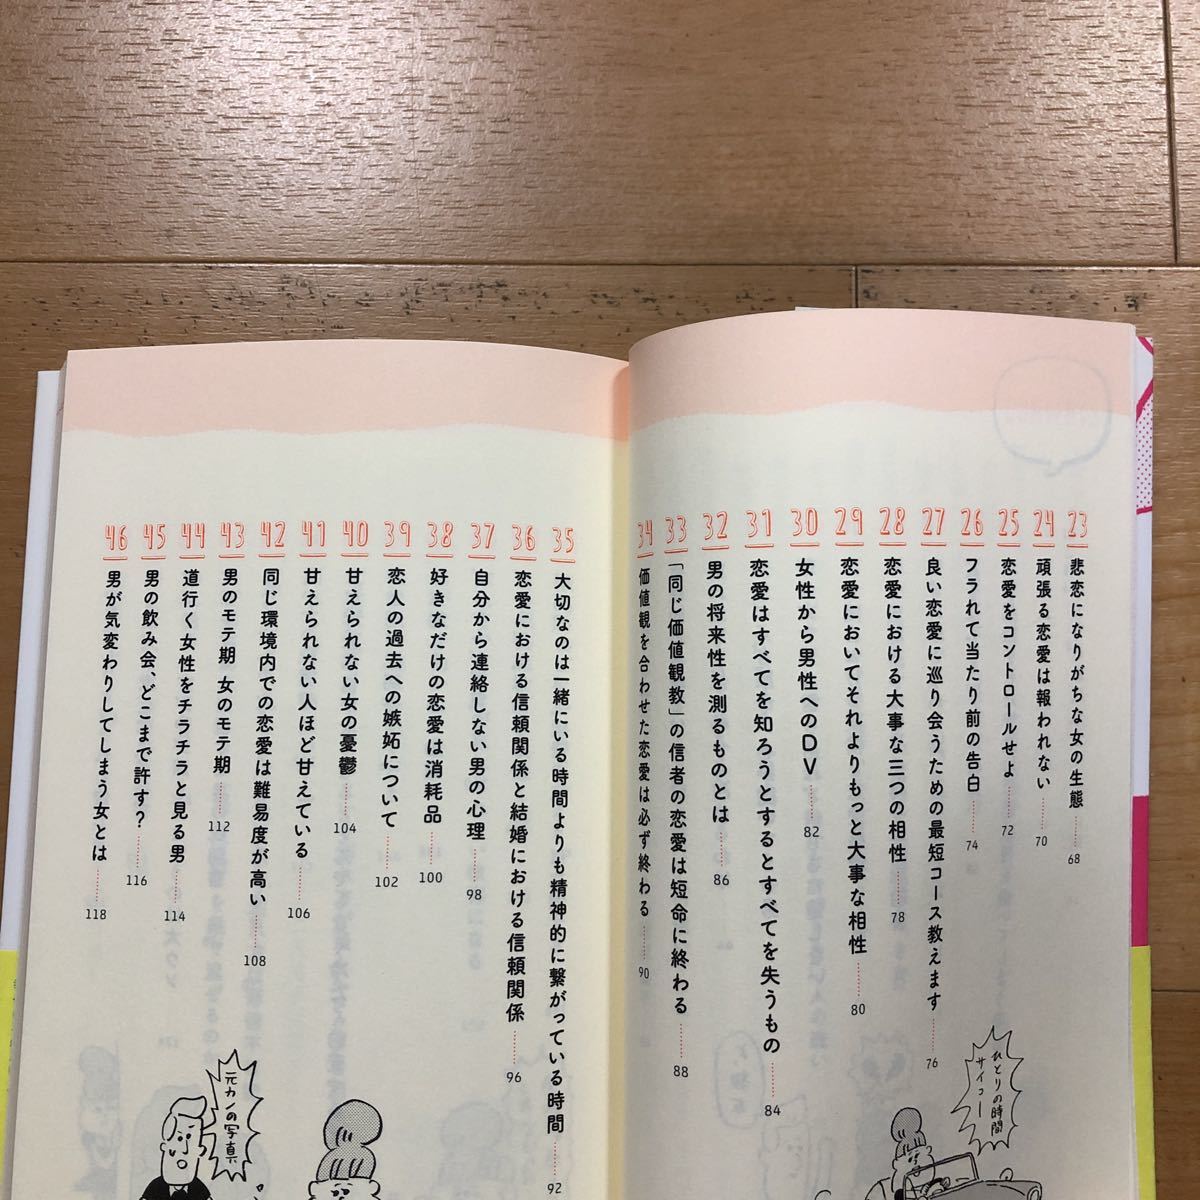 23 悲恋になりがちな女の生態 68
24 頑張る恋愛は報われない 70
25 恋愛をコントロールせよ 72
26 フラれて当たり前の告白 74
27 良い恋愛に巡り会うための最短コース教えます 76
28 恋愛における大事な三つの相性 78
29 恋愛においてそれよりもっと大事な相性 80
30 女性から男性へのDV 82
31 恋愛はすべてを知ろうとするとすべてを失うもの 84
32 男の将来性を測るものとは 86
33 「同じ価値観教」の信者の恋愛は短命に終わる 88
34 価値観を合わせた恋愛は必ず終わる 90
ひとりの時間
サイコー
35 大切なのは一緒にいる時間よりも精神的に繋がっている時間 92
36 恋愛における信頼関係と結婚における信頼関係 96
37 自分から連絡しない男の心理 98
38 好きなだけの恋愛は消耗品 100
39 恋人の過去への嫉妬について 102
40 甘えられない女の憂鬱 104
41 甘えられない人ほど甘えている 106
42 同じ環境内での恋愛は難易度が高い 108
43 男のモテ期 女のモテ期 112
44 道行く女性をチラチラと見る男 114
45 男の飲み会、どこまで許す? 116
46 男が気変わりしてしまう女とは 118
元カノの写真